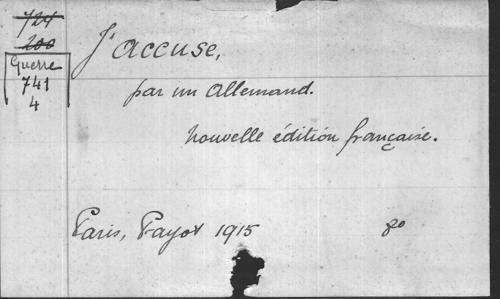 724
200
Guerre
741
4
J'accuse,
par un Allemand.
Nouvelle édition française.
Paris, Payot 1915 8o